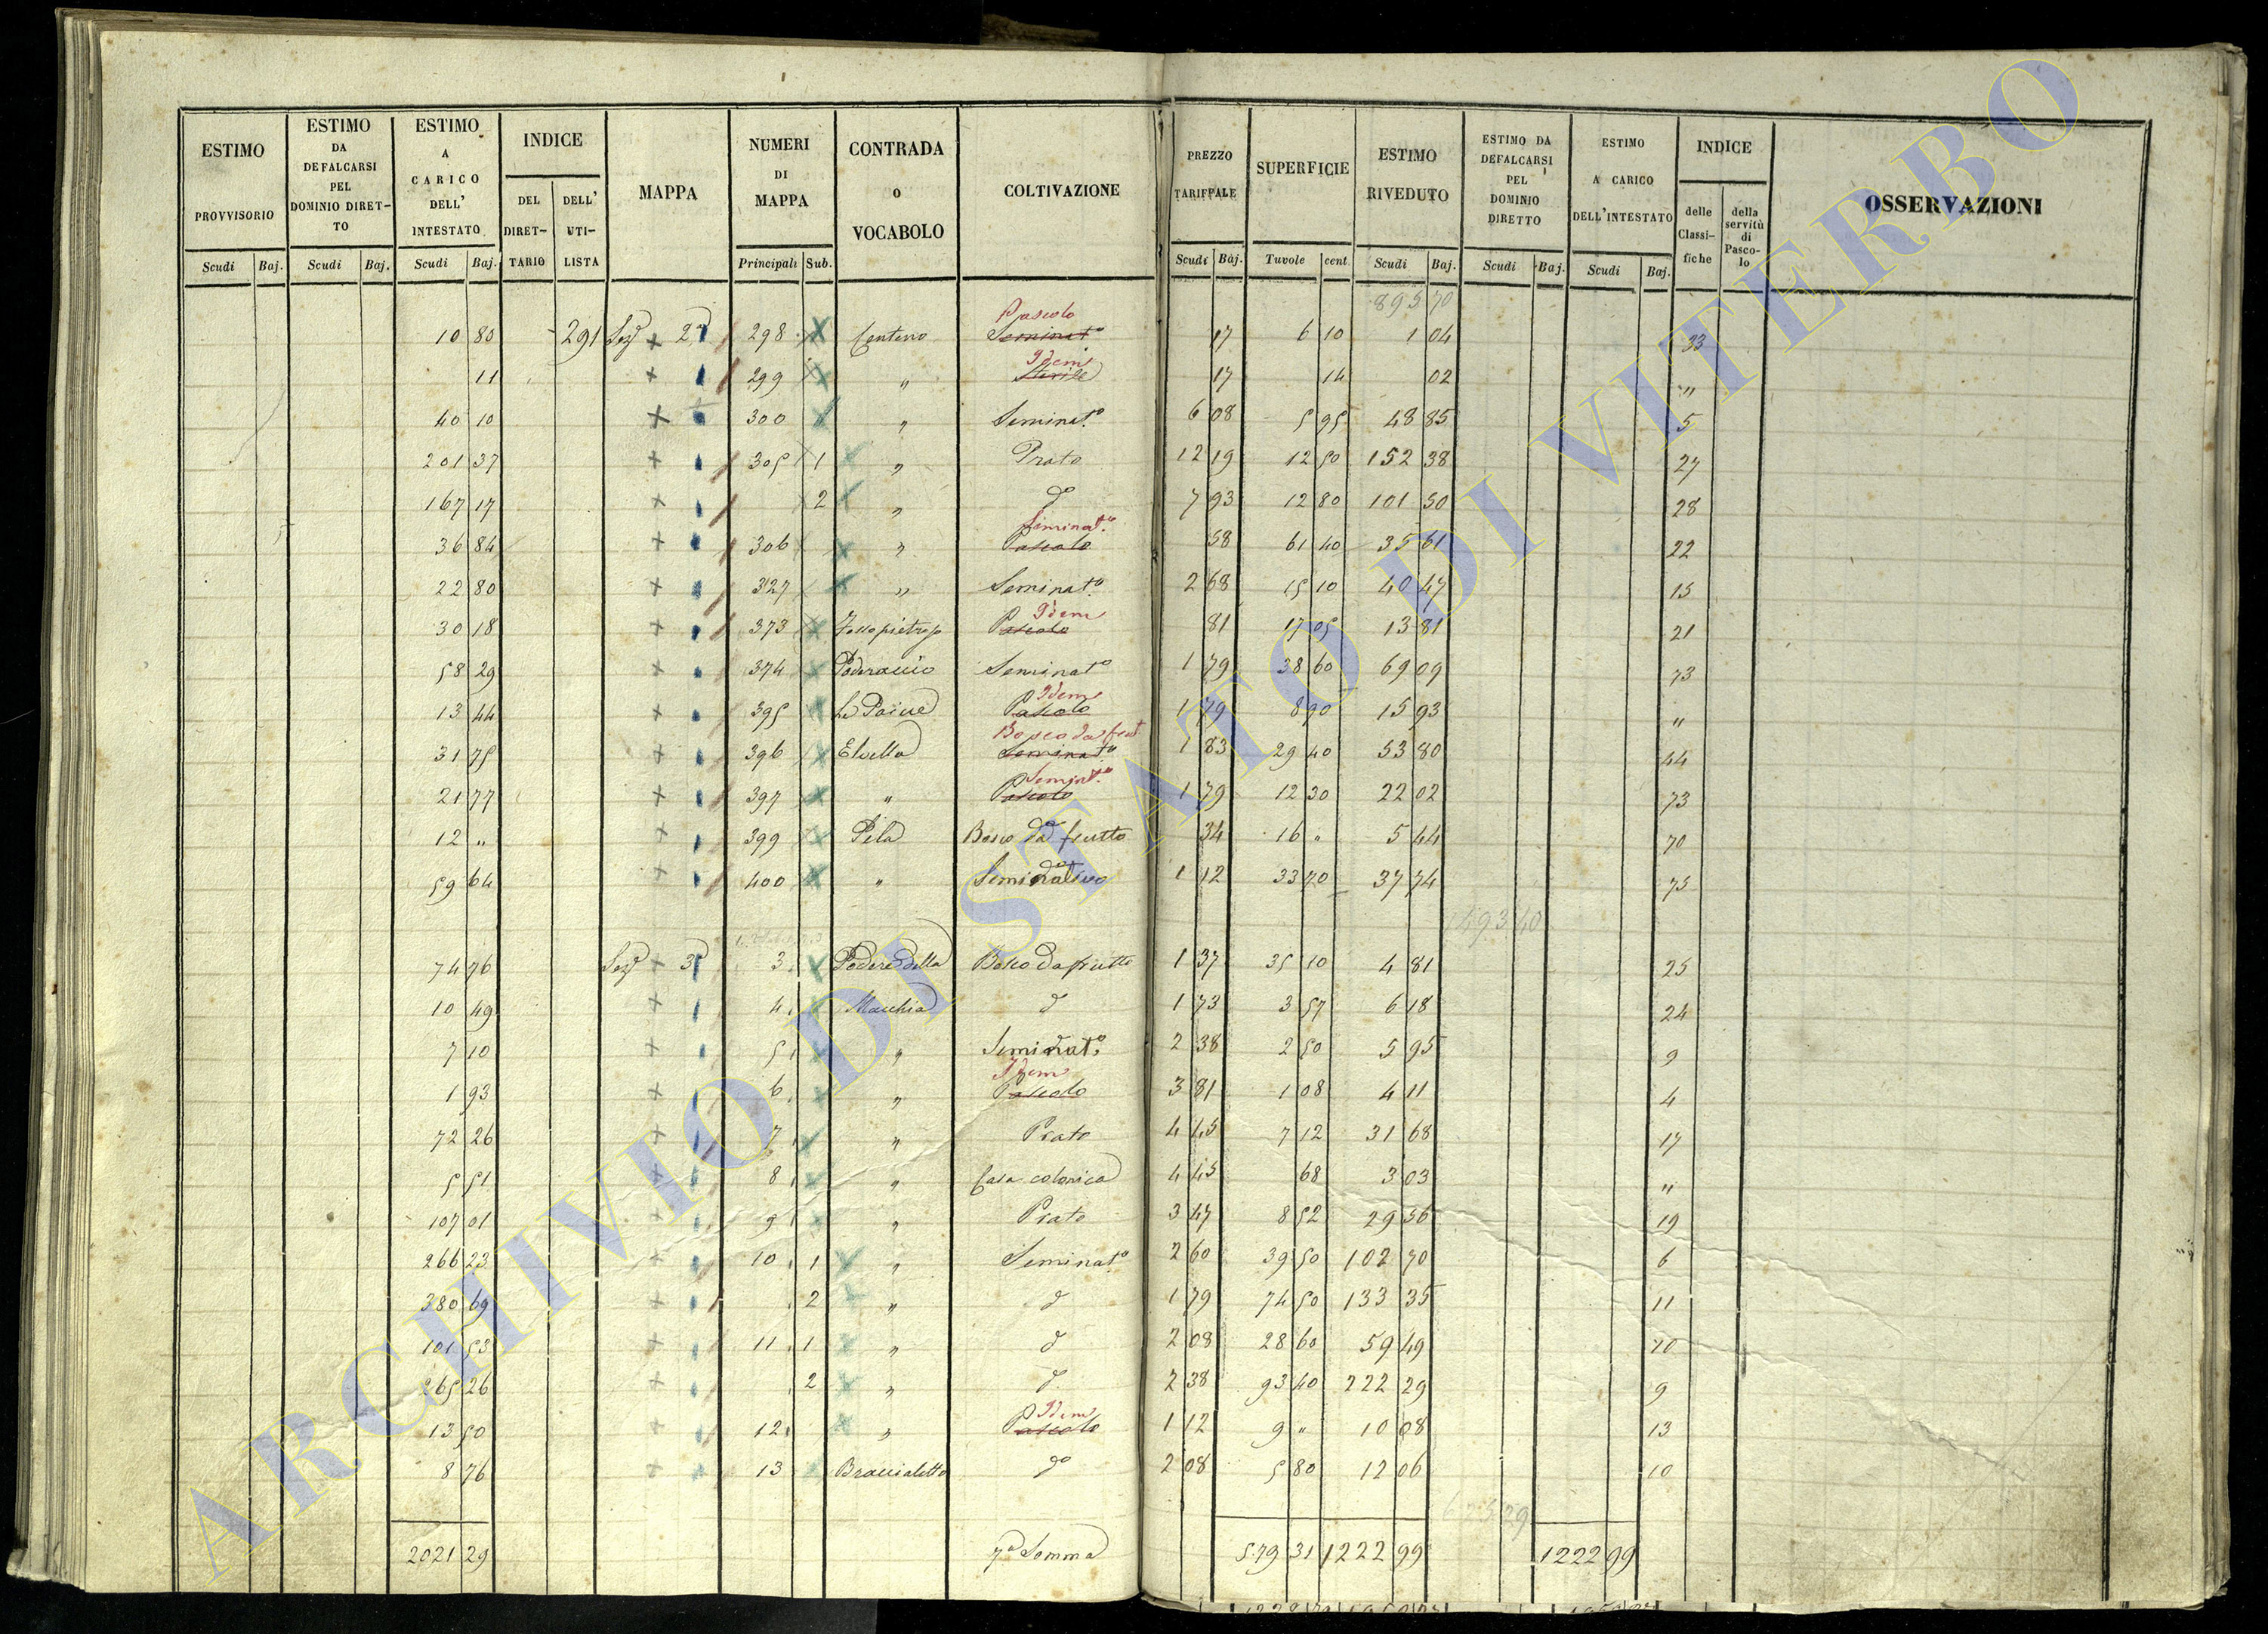 ESTIMO PROVVISORIO
ESTIMO DA DEFALCARSI PEL DOMINIO DIRETTO
ESTIMO A CARICO DELL' INTESTATO
INDICE
DEL DIRETTARIO
DELL' UTILISTA
MAPPA
NUMERI DI MAPPA
CONTRADA O VOCABOLO
COLTIVAZIONE
PREZZO TARIFFALE
SUPERFICIE
ESTIMO RIVEDUTO
ESTIMO DA DEFALCARSI PEL DOMINIO DIRETTO
ESTIMO A CARICO DELL'INTESTATO
INDICE
delle Classifiche
della servitù di Pascolo
OSSERVAZIONI
Scudi Baj. Scudi Baj. Scudi Baj. Principali Sub. Scudi Baj. Tavole cent. Scudi Baj. Scudi Baj. Scudi Baj.
893 70
10 80 291 Sezᵉ 2ª 298 Centeno Seminatº Pascolo 17 6 10 1 04 33
11 299 " Sterile Idem 17 14 02 "
40 10 300 " Seminatº 6 08 5 95 48 85 5
201 37 305 1 " Prato 12 19 12 50 152 38 27
167 17 2 " dº 7 93 12 80 101 50 28
36 84 306 " Pascolo Seminatº 58 61 40 35 61 22
22 80 327 " Seminatº 2 68 15 10 40 47 15
30 18 373 Fossopietroso Pascolo Idem 81 17 05 13 81 21
58 29 374 Poderaccio Seminatº 1 79 38 60 69 09 73
13 44 395 Pascolo Idem 1 79 8 90 15 93 "
31 75 396 Elvella Seminatº Bosco da frut 1 83 29 40 53 80 44
21 77 397 " Pascolo Seminatº 1 79 12 30 22 02 73
12 " 399 Pila Bosco da frutto 34 16 " 5 44 70
59 64 400 " Seminativo 1 12 33 70 37 74 75
493 40
74 76 Sezᵉ 3ª 3 Podere della Bosco da frutto 1 37 35 10 4 81 25
10 49 4 Macchia dº 1 73 3 57 6 18 24
7 10 5 " Seminatº 2 38 2 50 5 95 9
1 93 6 " Pascolo Idem 3 81 1 08 4 11 4
72 26 7 " Prato 4 45 7 12 31 68 17
5 51 8 " Casa colonica 4 45 68 3 03 "
107 01 9 " Prato 3 47 8 52 29 56 19
266 23 10 1 " Seminatº 2 60 39 50 102 70 6
380 69 2 " dº 1 79 74 50 133 35 11
101 53 11 1 " dº 2 08 28 60 59 49 10
265 26 2 " dº 2 38 93 40 222 29 9
13 50 12 " Pascolo Idem 1 12 9 " 10 08 13
8 76 13 Braccialetto dº 2 08 5 80 12 06 10
29
2021 29 7ª Somma 579 31 1222 99 1222 99
ARCHIVIO DI STATO DI VITERBO